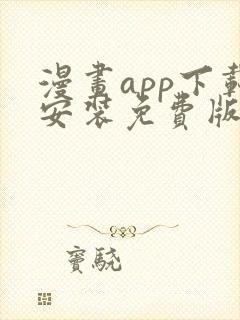 漫畫app下載
安裝免費版
竇驍